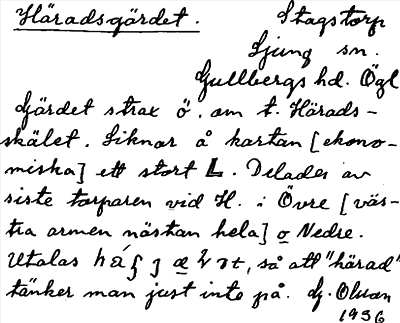 Häradsgärdet. Stagstorp
Ljung sn.
Gullbergs hd. Ögl
Gärdet strax ö. om t. Härads-
skälet. Liknar å kartan [ekono-
miska] ett stort L. Delades av
siste torparen vid H. i Övre [väs-
tra armen nästan hela] o Nedre.
Utalas så att "härad"
tänker man just inte på. G. Olson
1936